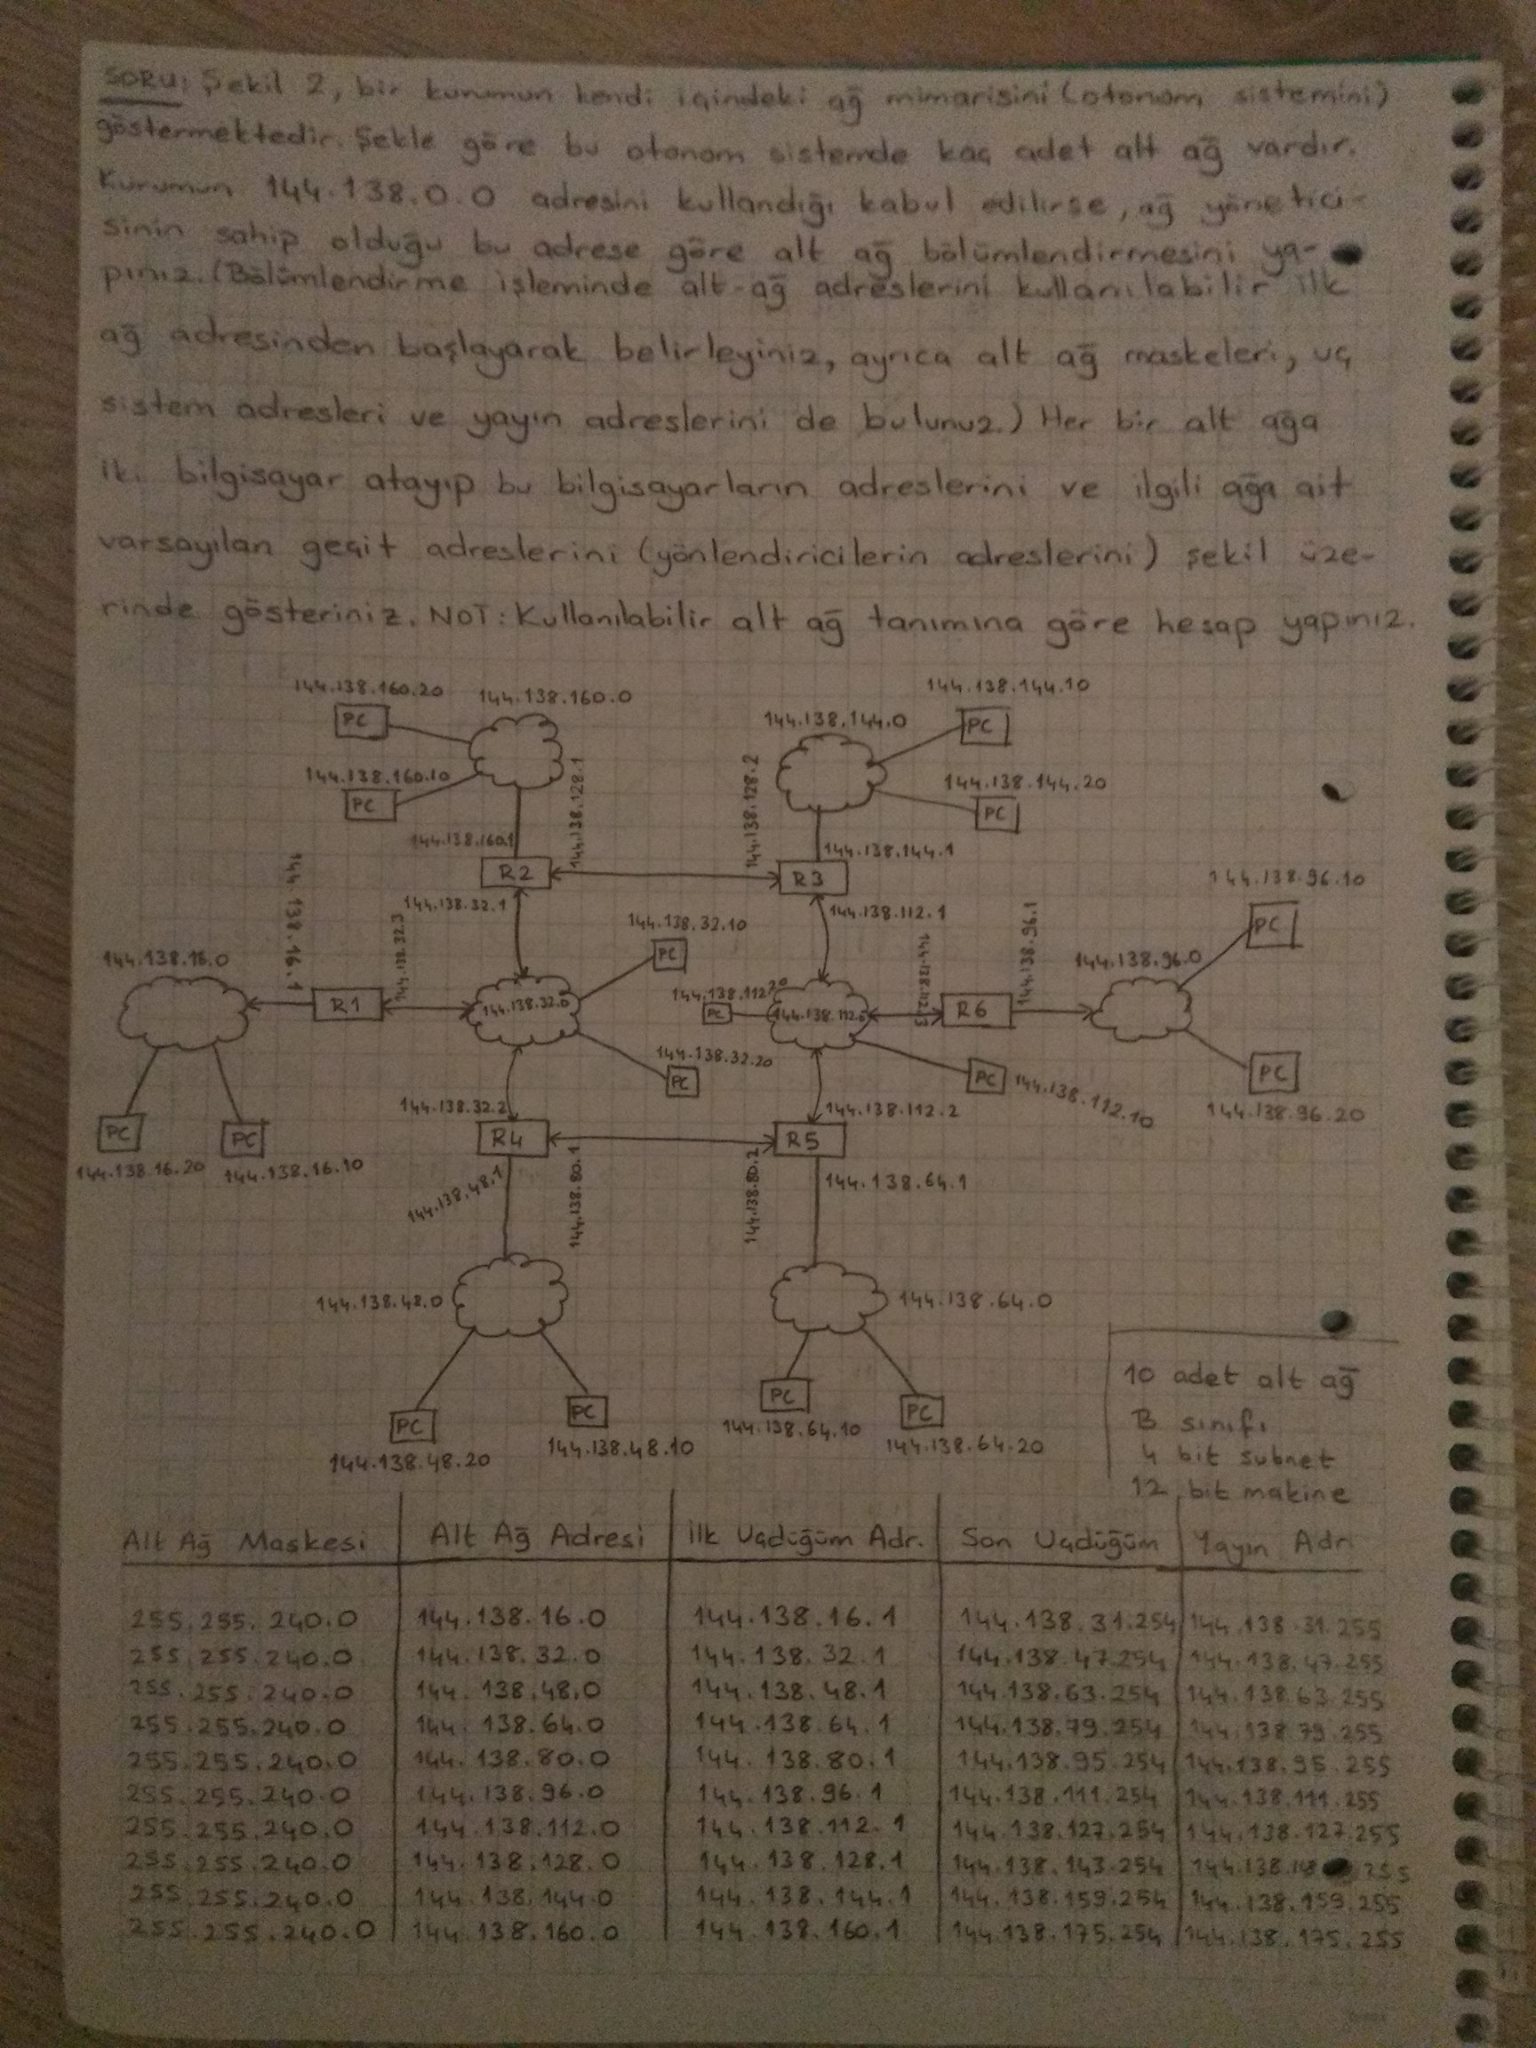 SORU: Şekil 2, bir kurumun kendi içindeki ağ mimarisini (otonom sistemini)
göstermektedir. Şekle göre bu otonom sistemde kaç adet alt ağ vardır.
Kurumun 144.138.0.0 adresini kullandığı kabul edilirse, ağ yönetici-
sinin sahip olduğu bu adrese göre alt ağ bölümlendirmesini ya-
pınız. (Bölümlendirme işleminde alt-ağ adreslerini kullanılabilir ilk
ağ adresinden başlayarak belirleyiniz, ayrıca alt ağ maskeleri, uç
sistem adresleri ve yayın adreslerini de bulunuz.) Her bir alt ağa
iki bilgisayar atayıp bu bilgisayarların adreslerini ve ilgili ağa ait
varsayılan geçit adreslerini (yönlendiricilerin adreslerini) şekil üze-
rinde gösteriniz. NOT: Kullanılabilir alt ağ tanımına göre hesap yapınız.
144.138.160.20 144.138.160.0 144.138.144.10
PC 144.138.144.0 PC
144.138.160.10 144.138.128.1 144.138.128.2 144.138.144.20
PC PC
144.138.160.1 144.138.144.1
R2 R3
144.138.32.1 144.138.112.1 144.138.96.10
144.138.16.1 144.138.32.3 144.138.32.10 144.138.112.3 144.138.96.1 PC
144.138.16.0 PC 144.138.96.0
R1 144.138.32.0 144.138.112.20 PC 144.138.112.0 R6
144.138.32.20 PC 144.138.112.10 PC
PC
144.138.32.2 144.138.112.2 144.138.96.20
PC PC R4 R5
144.138.16.20 144.138.16.10 144.138.48.1 144.138.80.1 144.138.80.2 144.138.64.1
144.138.48.0 144.138.64.0
PC PC PC PC
144.138.48.20 144.138.48.10 144.138.64.10 144.138.64.20
10 adet alt ağ
B sınıfı
4 bit subnet
12 bit makine
Alt Ağ Maskesi Alt Ağ Adresi İlk Uçdüğüm Adr. Son Uçdüğüm Yayın Adr.
255.255.240.0 144.138.16.0 144.138.16.1 144.138.31.254 144.138.31.255
255.255.240.0 144.138.32.0 144.138.32.1 144.138.47.254 144.138.47.255
255.255.240.0 144.138.48.0 144.138.48.1 144.138.63.254 144.138.63.255
255.255.240.0 144.138.64.0 144.138.64.1 144.138.79.254 144.138.79.255
255.255.240.0 144.138.80.0 144.138.80.1 144.138.95.254 144.138.95.255
255.255.240.0 144.138.96.0 144.138.96.1 144.138.111.254 144.138.111.255
255.255.240.0 144.138.112.0 144.138.112.1 144.138.127.254 144.138.127.255
255.255.240.0 144.138.128.0 144.138.128.1 144.138.143.254 144.138.14 255
255.255.240.0 144.138.144.0 144.138.144.1 144.138.159.254 144.138.159.255
255.255.240.0 144.138.160.0 144.138.160.1 144.138.175.254 144.138.175.255